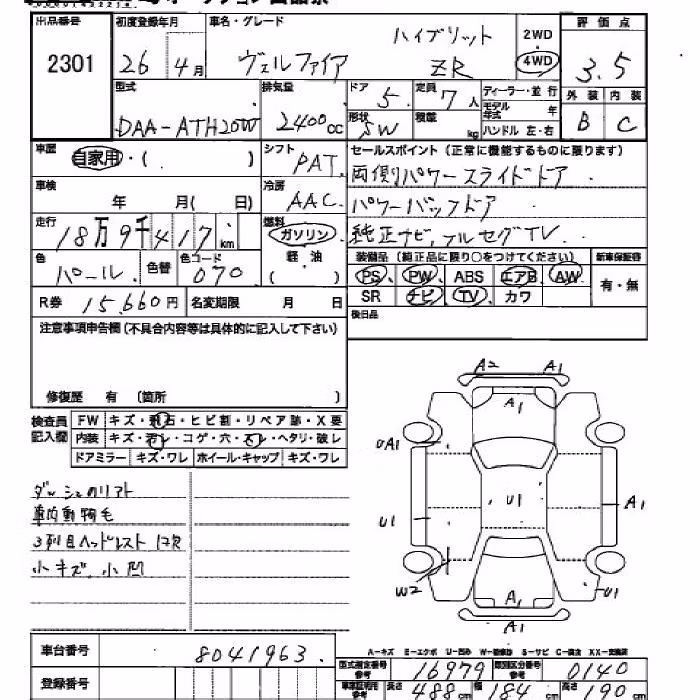 出品番号 初度登録年月 車名・グレード ハイブリット 2WD 評価点
2301 26年4月 ヴェルファイア ZR 4WD 3.5
型式 排気量 ドア 5. 定員 7人 ディーラー・並行 外装 内装
DAA-ATH20W 2400cc 形状 SW 積載 kg モデル年式 年 B C
ハンドル 左・右
車歴 自家用・( ) シフト PAT. セールスポイント(正常に機能するものに限ります)
両側パワースライドドア
車検 年 月( 日) 冷房 AAC. パワーバックドア
走行 18万9千417km 燃料 ガソリン 純正ナビ,フルセグTV.
軽・油
( )
色 パール. 色替 色コード 070 装備品(純正品に限り○をつけてください) 新車保証書
PS PW ABS エアB AW 有・無
R券 15,660円 名変期限 月 日 SR ナビ TV カワ
注意事項申告欄(不具合内容等は具体的に記入して下さい) 後日品
修復歴 有 〔箇所 〕
検査員記入欄 FW キズ・飛石・ヒビ割・リペア跡・X要
内装 キズ・汚レ・コゲ・穴・スレ・ヘタリ・破レ
ドアミラー キズ・ワレ ホイール・キャップ キズ・ワレ
A2 A1
A1
UA1
U1 U1 A1
W2 A1 U1
A1
車内動物毛
3列目ヘッドレスト1欠
小キズ,小凹
A-キズ E-エクボ U-凹み W-補修跡 S-サビ C-腐食 XX-交換済
車台番号 8041963.
型式指定番号 16979 類別区分番号 0140
登録番号
長さ 488cm 幅 184cm 高さ 190cm